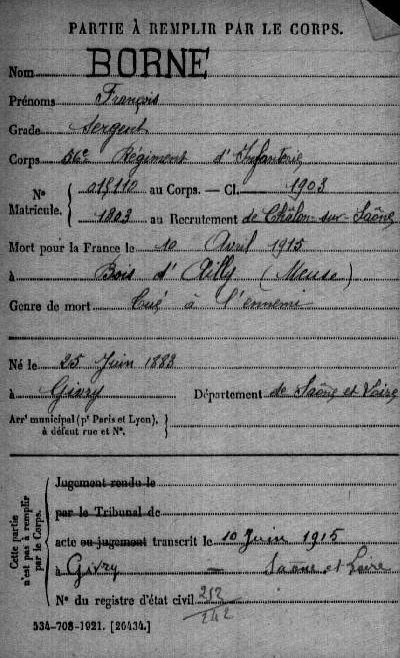 PARTIE À REMPLIR PAR LE CORPS.
Nom BORNE
Prénoms François
Grade Sergent
Corps 56e Régiment d'Infanterie
No Matricule. { 015110 au Corps. — Cl. 1903
1803 au Recrutement de Châlon-sur-Saône
Mort pour la France le 10 Avril 1915
à Bois d'Ailly (Meuse)
Genre de mort Tué à l'ennemi
Né le 25 Juin 1883
à Givry Département de Saône et Loire
Arrt municipal (pr Paris et Lyon), }
à défaut rue et No.
Cette partie n'est pas à remplir par le Corps.
Jugement rendu le
par le Tribunal de
acte ou jugement transcrit le 10 Juin 1915
à Givry — Saone et Loire
No du registre d'état civil
534-708-1921. [26434.]